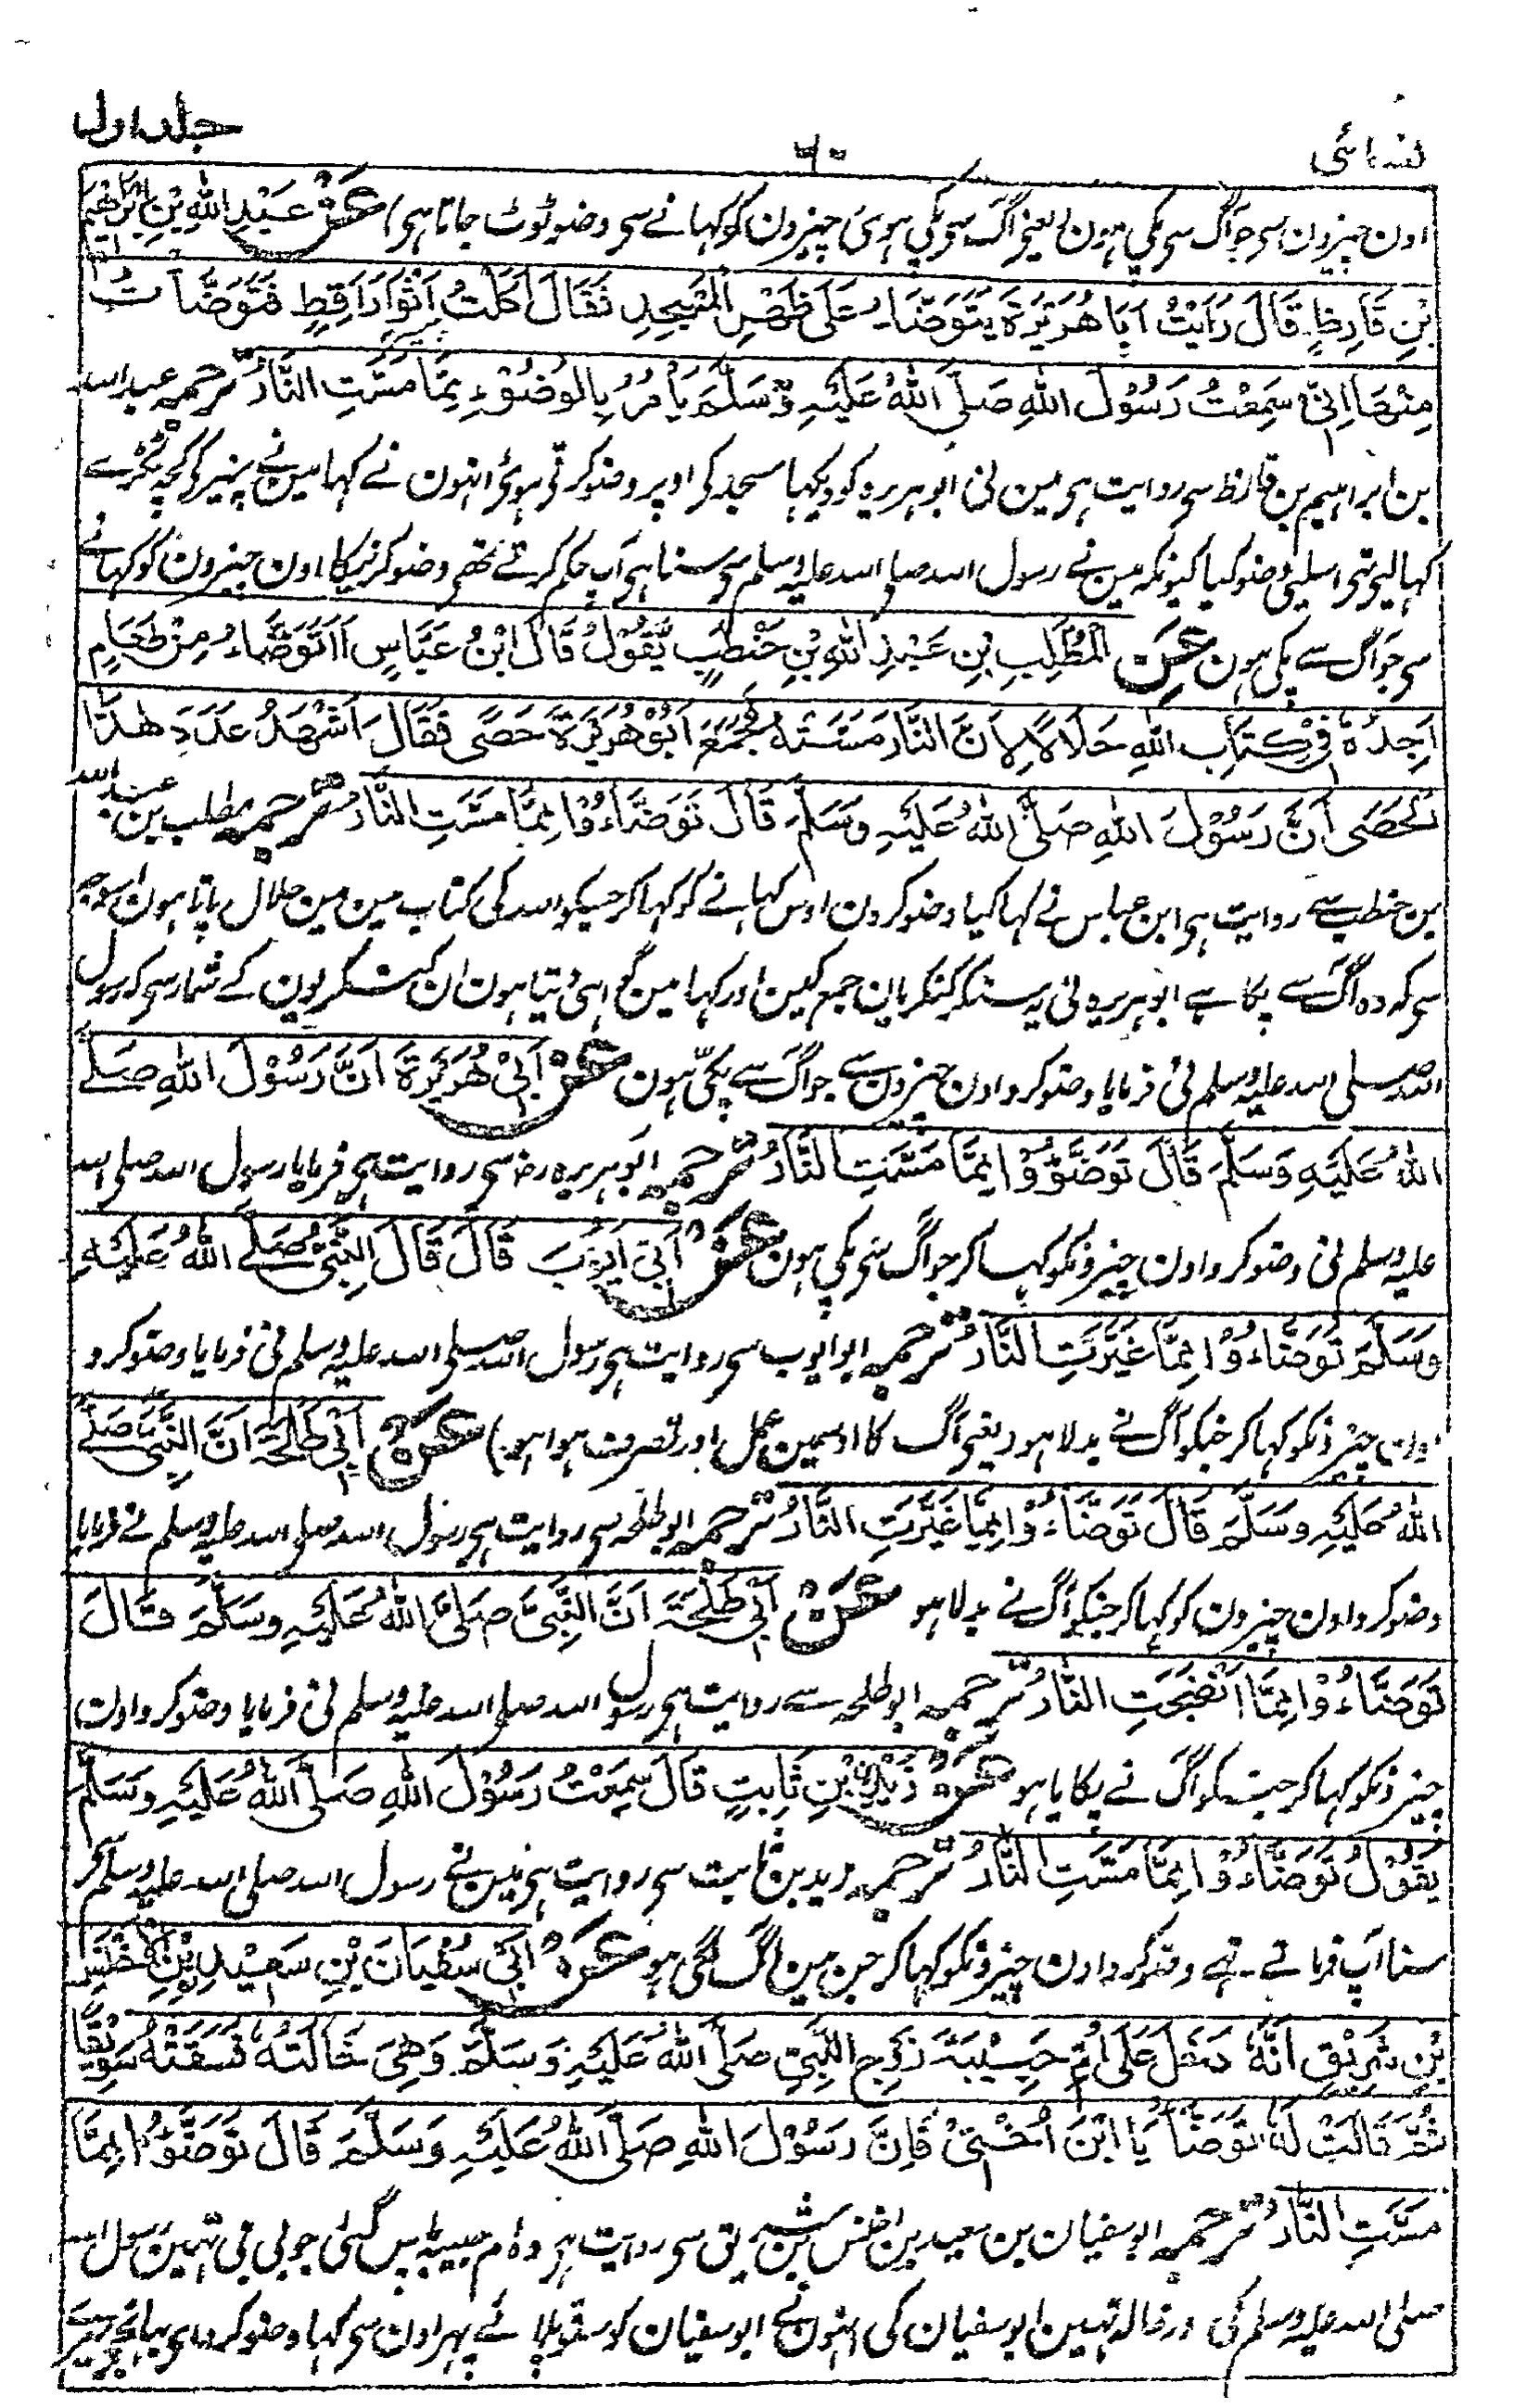 نسائی
۶۰
جلد اول
اون چیزون سی جو آگ سی پکی ہون (یعنی آگ سی پکی ہوئی چیزون کو کہانے سی وضو ٹوٹ جاتا ہی) عَنْ عَبْدِ اللهِ بْنِ اِبْرٰهِيْمَ
بْنِ قَارِظٍ قَالَ رَاَيْتُ اَبَا هُرَيْرَةَ يَتَوَضَّاءُ عَلَى ظَهْرِ الْمَسْجِدِ فَقَالَ اَكَلْتُ اَثْوَارَ اَقِطٍ فَتَوَضَّاْتُ
مِنْهَا اِنِّيْ سَمِعْتُ رَسُوْلَ اللهِ صَلَّى اللهُ عَلَيْهِ وَسَلَّمَ يَاْمُرُ بِالْوُضُوْءِ مِمَّا مَسَّتِ النَّارُ ترجمہ عبد اللہ
بن ابراہیم بن قارظ سی روایت ہی مین نی ابو ہریرہ کو دیکہا مسجد کی اوپر وضو کرتی ہوئی انہون نے کہا مین نے پنیر کی کچہ ٹکڑے
کہا لیی تہی اسلیی وضو کیا کیونکہ مین نے رسول اللہ صلی اللہ علیہ وسلم سی سنا ہی آپ حکم کرتے تھی وضو کرنیکا اون چیزون کو کہانے
سی جو آگ سے پکی ہون عَنِ الْمُطَّلِبِ بْنِ عَبْدِ اللهِ بْنِ حَنْطَبٍ يَقُوْلُ قَالَ ابْنُ عَبَّاسٍ اَاَتَوَضَّاءُ مِنْ طَعَامٍ
اَجِدُهٗ فِيْ كِتَابِ اللهِ حَلَالًا لِاَنَّ النَّارَ مَسَّتْهُ فَجَمَعَ اَبُوْ هُرَيْرَةَ حَصًى فَقَالَ اَشْهَدُ عَدَدَ هٰذَا
الْحَصَى اَنَّ رَسُوْلَ اللهِ صَلَّى اللهُ عَلَيْهِ وَسَلَّمَ قَالَ تَوَضَّاءُوْا مِمَّا مَسَّتِ النَّارُ ترجمہ مطلب بن عبد اللہ
بن حنطب سے روایت ہی ابن عباس نے کہا کیا وضو کرون اوس کہانے کو کہا کر جسکو اللہ کی کتاب مین مین حلال پاتا ہون اسوجہ
سی کہ وہ آگ سے پکا ہے ابو ہریرہ نی یہ سنکر کنکریان جمع کین اور کہا مین گواہی دیتا ہون ان کنکریون کے شمار سی کہ رسول
اللہ صلی اللہ علیہ وسلم نی فرمایا وضو کرو اون چیزون سے جو آگ سے پکی ہون عَنْ اَبِيْ هُرَيْرَةَ اَنَّ رَسُوْلَ اللهِ صَلَّى
اللهُ عَلَيْهِ وَسَلَّمَ قَالَ تَوَضَّؤُوْا مِمَّا مَسَّتِ النَّارُ ترجمہ ابو ہریرہ رضہ سی روایت ہی فرمایا رسول اللہ صلی اللہ
علیہ وسلم نی وضو کرو اون چیزونکو کہا کر جو آگ سی پکی ہون عَنْ اَبِيْ اَيُّوْبَ قَالَ قَالَ النَّبِيُّ صَلَّى اللهُ عَلَيْهِ
وَسَلَّمَ تَوَضَّاءُوْا مِمَّا غَيَّرَتِ النَّارُ ترجمہ ابو ایوب سی روایت ہی رسول اللہ صلی اللہ علیہ وسلم نی فرمایا وضو کرو
اون چیزونکو کہا کر جنکو آگ نے بدلا ہو (یعنی آگ کا اوسمین عمل اور تصرف ہوا ہو) عَنْ اَبِيْ طَلْحَةَ اَنَّ النَّبِيَّ صَلَّى
اللهُ عَلَيْهِ وَسَلَّمَ قَالَ تَوَضَّاءُوْا مِمَّا غَيَّرَتِ النَّارُ ترجمہ ابو طلحہ سی روایت ہی رسول اللہ صلی اللہ علیہ وسلم نے فرمایا
وضو کرو اون چیزون کو کہا کر جنکو آگ نے بدلا ہو عَنْ اَبِيْ طَلْحَةَ اَنَّ النَّبِيَّ صَلَّى اللهُ عَلَيْهِ وَسَلَّمَ قَالَ
تَوَضَّاءُوْا مِمَّا اَنْضَجَتِ النَّارُ ترجمہ ابو طلحہ سے روایت ہی رسول اللہ صلی اللہ علیہ وسلم نی فرمایا وضو کرو اون
چیزونکو کہا کر جسکو آگ نے پکایا ہو عَنْ زَيْدِ بْنِ ثَابِتٍ قَالَ سَمِعْتُ رَسُوْلَ اللهِ صَلَّى اللهُ عَلَيْهِ وَسَلَّمَ
يَقُوْلُ تَوَضَّاءُوْا مِمَّا مَسَّتِ النَّارُ ترجمہ زید بن ثابت سی روایت ہی مین نے رسول اللہ صلی اللہ علیہ وسلم سی
سنا آپ فرماتے تہے وضو کرو اون چیزونکو کہا کر جن مین آگ لگی ہو عَنْ اَبِيْ سُفْيَانَ بْنِ سَعِيْدِ بْنِ الْاَخْنَسِ
بْنِ شَرِيْقٍ اَنَّهٗ دَخَلَ عَلَى اُمِّ حَبِيْبَةَ زَوْجِ النَّبِيِّ صَلَّى اللهُ عَلَيْهِ وَسَلَّمَ وَهِيَ خَالَتُهٗ فَسَقَتْهُ سَوِيْقًا
ثُمَّ قَالَتْ لَهٗ تَوَضَّاْ يَا ابْنَ اُخْتِيْ فَاِنَّ رَسُوْلَ اللهِ صَلَّى اللهُ عَلَيْهِ وَسَلَّمَ قَالَ تَوَضَّؤُا مِمَّا
مَسَّتِ النَّارُ ترجمہ ابو سفیان بن سعید بن اخنس بن شریق سی روایت ہی وہ ام حبیبہ پاس گئی جو بی بی تہین رسول اللہ
صلی اللہ علیہ وسلم کی اور خالہ تہین ابو سفیان کی انہون نے ابو سفیان کو ستو پلائے پہر اون سی کہا وضو کرو ای بہانجے میرے